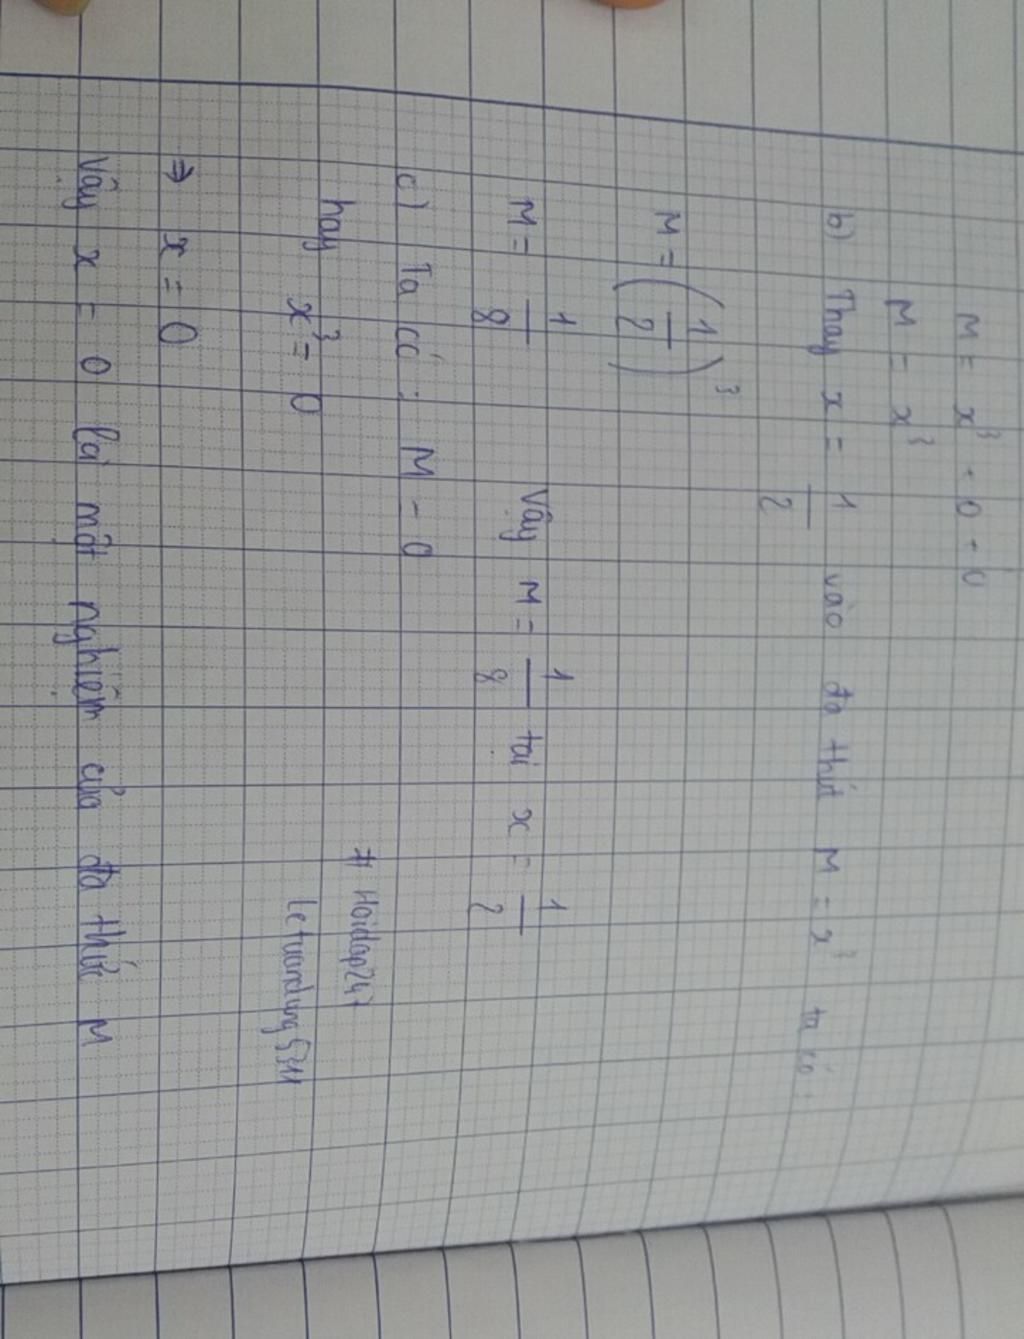 M = x³ + 0 + 0
M = x³
b) Thay x = 1/2 vào đa thức M = x³ ta có:
M = (1/2)³
M = 1/8 Vậy M = 1/8 tại x = 1/2
c) Ta có: M = 0
hay x³ = 0
# Hoidap247
⇒ x = 0
Vậy x = 0 là một nghiệm của đa thức M